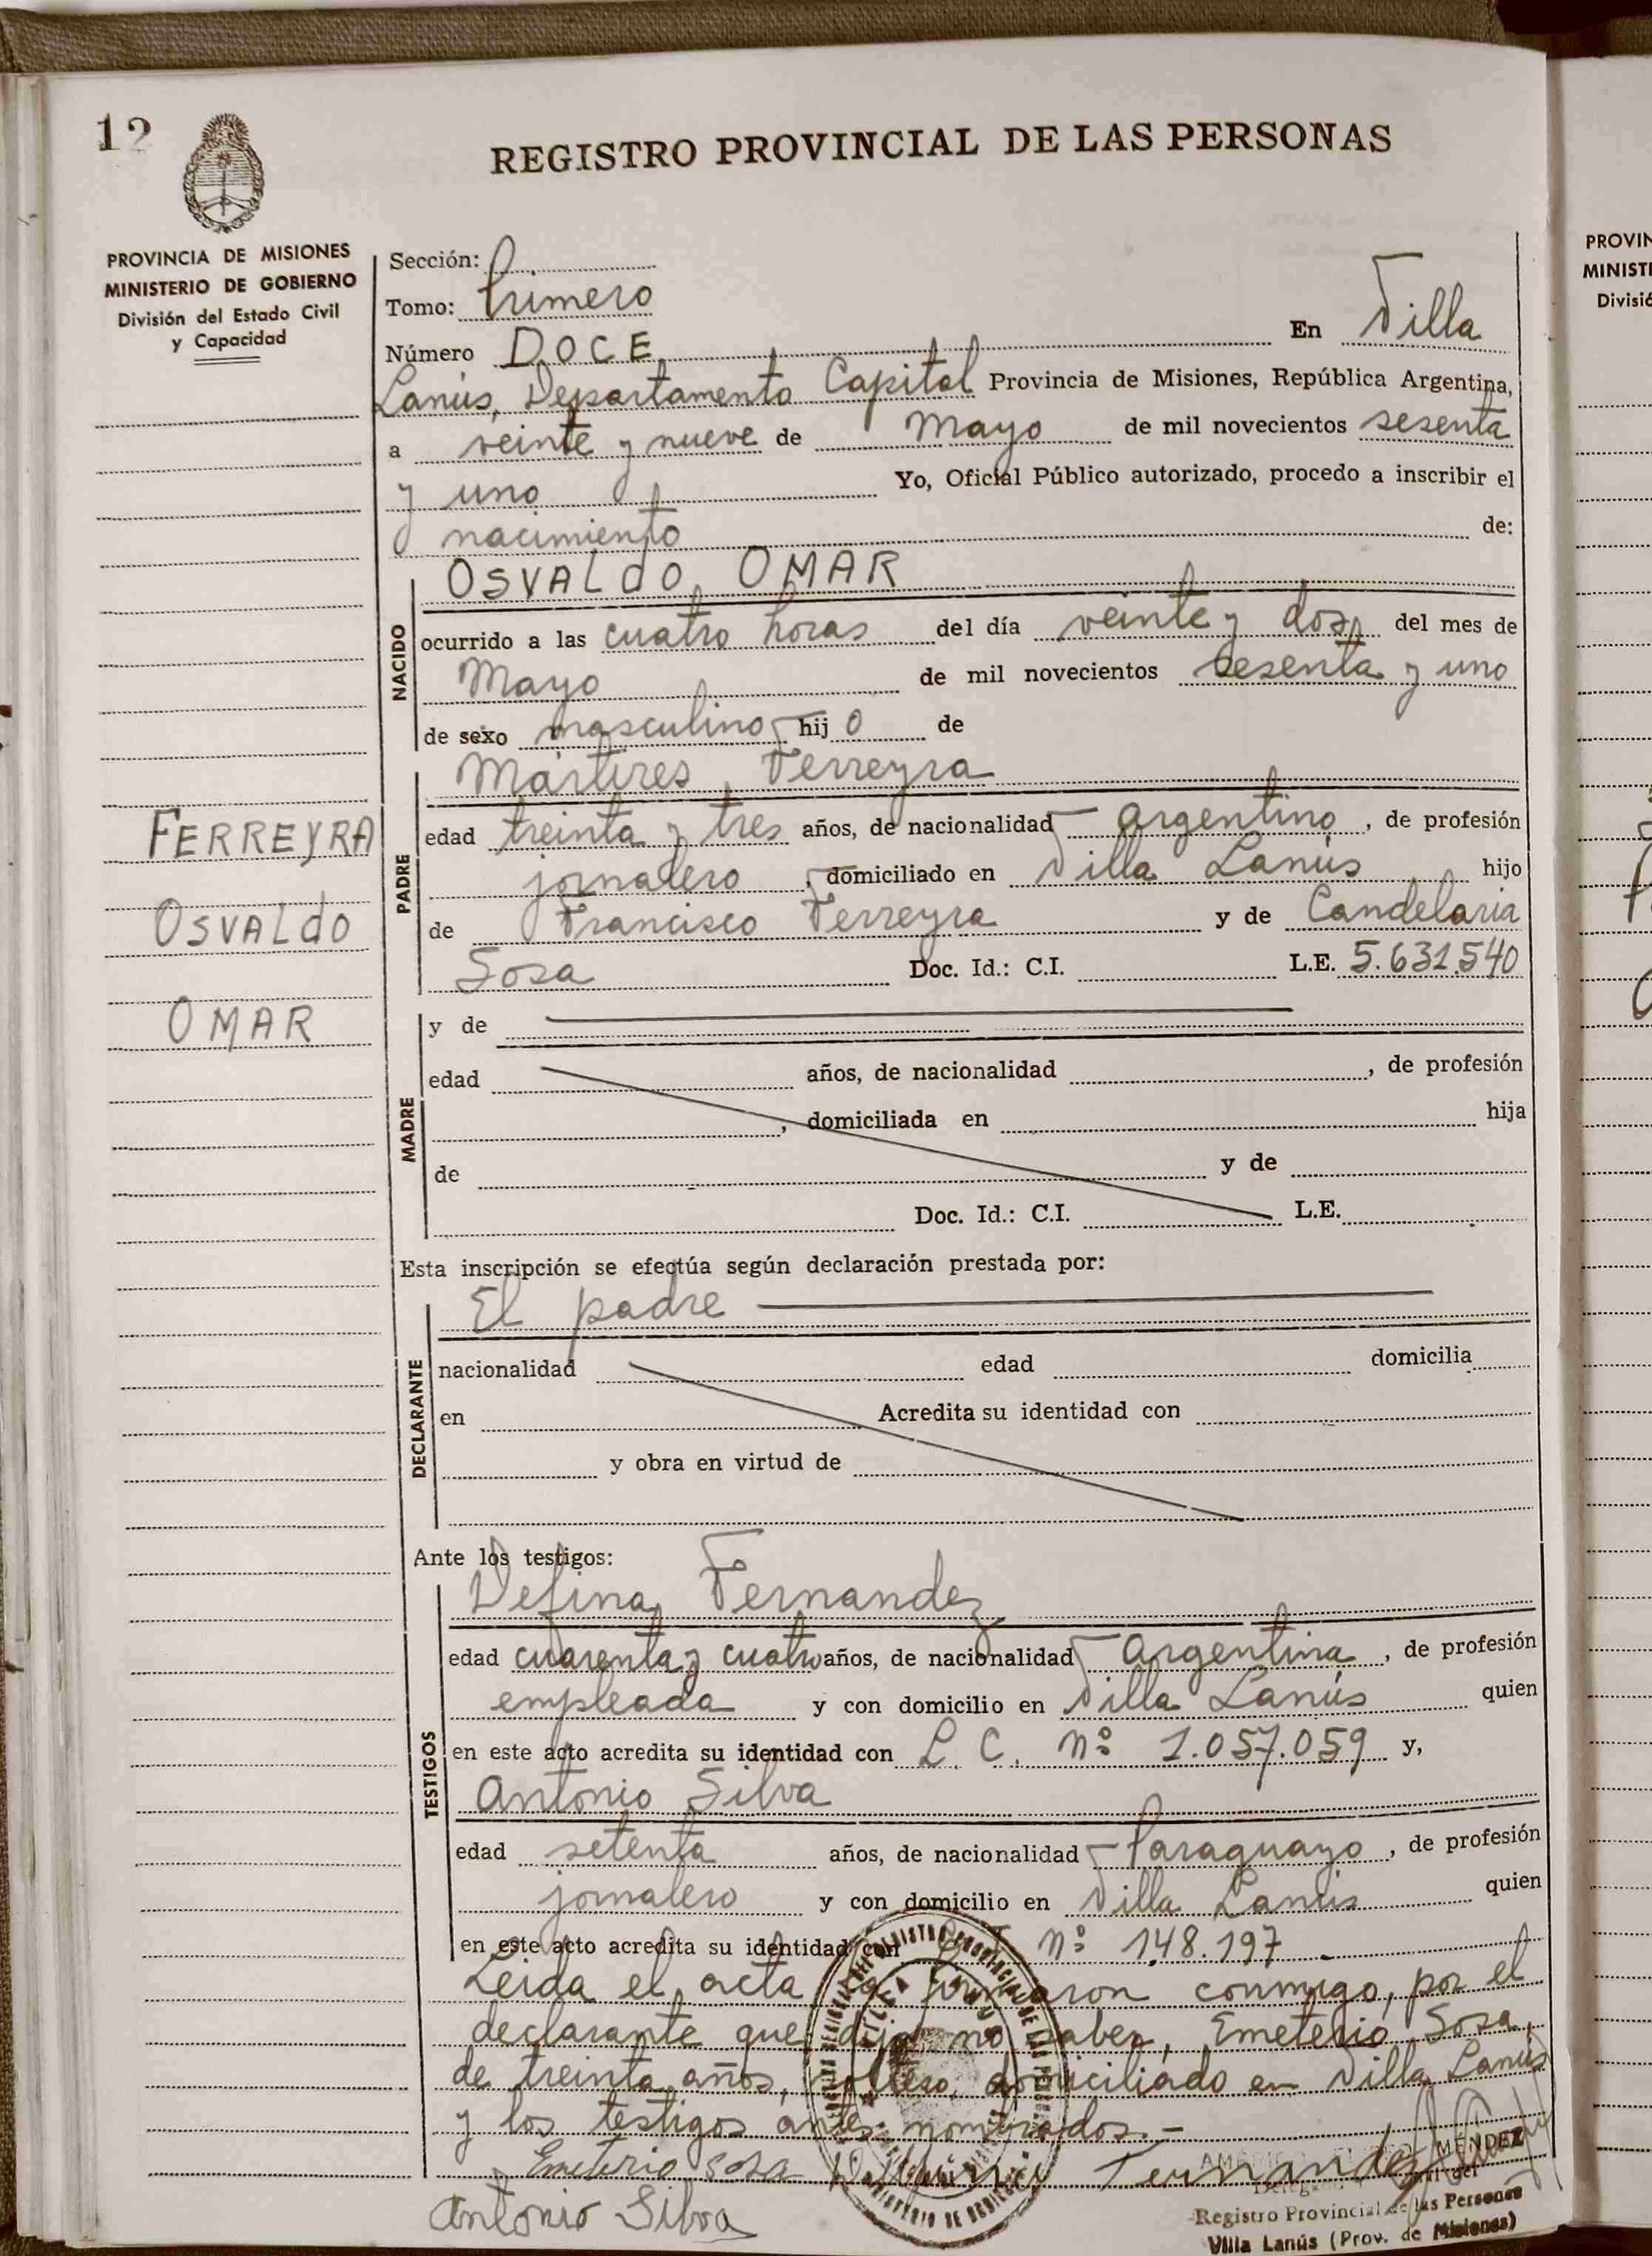 12
REGISTRO PROVINCIAL DE LAS PERSONAS
PROVINCIA DE MISIONES
MINISTERIO DE GOBIERNO
División del Estado Civil
y Capacidad
Sección:
Tomo: Primero
Número DOCE En Villa
Lanús, Departamento Capital Provincia de Misiones, República Argentina,
a veinte y nueve de Mayo de mil novecientos sesenta
y uno Yo, Oficial Público autorizado, procedo a inscribir el
nacimiento de:
NACIDO
OSVALdO OMAR
ocurrido a las cuatro horas del día veinte y dos del mes de
Mayo de mil novecientos sesenta y uno
de sexo masculino hijo de
PADRE
Mártires Ferreyra
edad treinta y tres años, de nacionalidad argentino, de profesión
jornalero, domiciliado en Villa Lanús hijo
de Francisco Ferreyra y de Candelaria
Sosa Doc. Id.: C.I. L.E. 5.631.540
FERREYRA
OSVALdO
OMAR
MADRE
y de
edad años, de nacionalidad , de profesión
, domiciliada en hija
de y de
Doc. Id.: C.I. L.E.
Esta inscripción se efectúa según declaración prestada por:
DECLARANTE
El padre
nacionalidad edad domicilia
en Acredita su identidad con
y obra en virtud de
Ante los testigos:
TESTIGOS
Defina Fernandez
edad cuarenta y cuatro años, de nacionalidad argentina, de profesión
empleada y con domicilio en Villa Lanús quien
en este acto acredita su identidad con L. C. Nº 1.057.059 y,
Antonio Silva
edad setenta años, de nacionalidad Paraguayo, de profesión
jornalero y con domicilio en Villa Lanús quien
en este acto acredita su identidad con Nº 148.197
Leida el acta la firmaron conmigo, por el
declarante que dijo no saber, Emeterio Sosa,
de treinta años, soltero, domiciliado en Villa Lanús
y los testigos antes nombrados.-
Emeterio Sosa Fernandez
Antonio Silva
MENDEZ
Registro Provincial de las Personas
Villa Lanús (Prov. de Misiones)
PROVIN
MINIST
Divisió